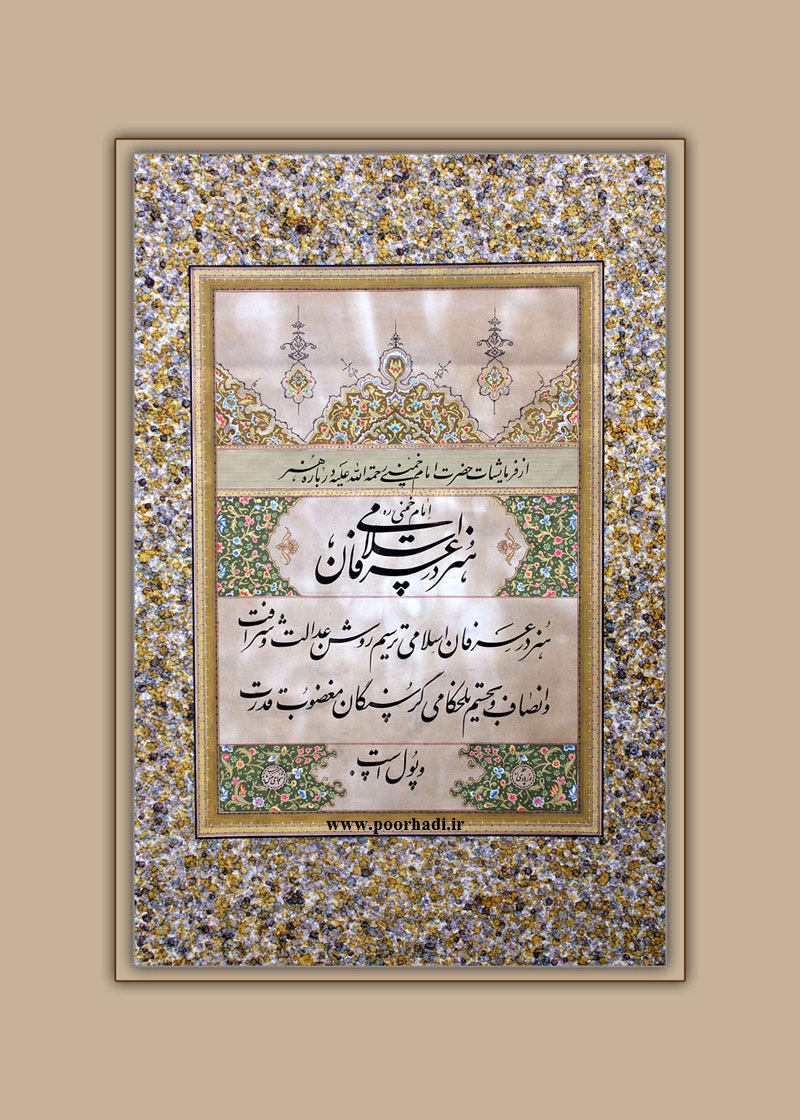 از فرمایشات حضرت امام خمینی رحمة الله علیه درباره هنر
امام خمینی ره
هنر در عرفان اسلامی
هنر در عرفان اسلامی ترسیم روشن عدالت و شرافت
و انصاف و تجسیم تلخکامی گرسنگان مغضوب قدرت
و پول است.
www.poorhadi.ir